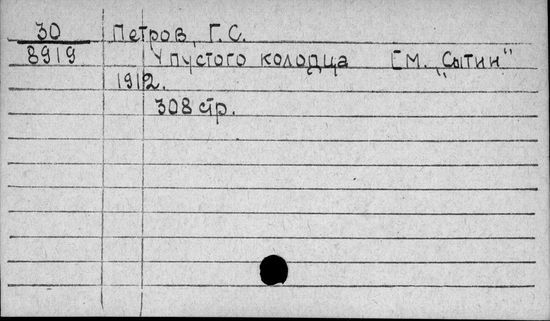 30 Петров, Г. С.
8919 У пустого колодца Ем. "Сытин"
1912.
308 стр.